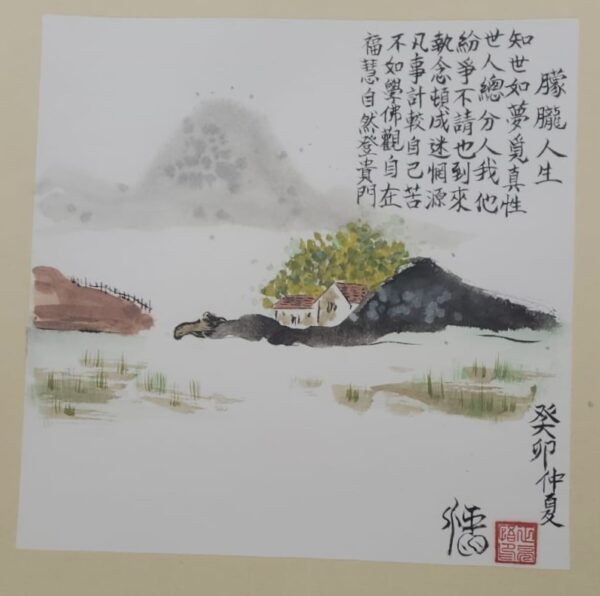 朦朧人生
知世如夢覓真性
世人總分人我他
紛爭不請也到來
執念頓成迷惘源
凡事計較自己苦
不如學佛觀自在
福慧自然登貴門
癸卯仲夏